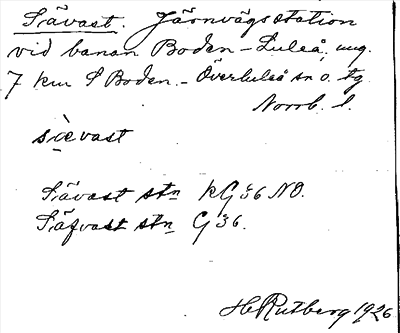 Sävast. Järnvägsstation
vid banan Boden - Luleå, ung.
7 km S Boden. - Överluleå sn o. tg
Norrb. l.
sàevast
Sävast stn KG 36 NO.
Säfvast stn G 36.
H Rutberg 1926